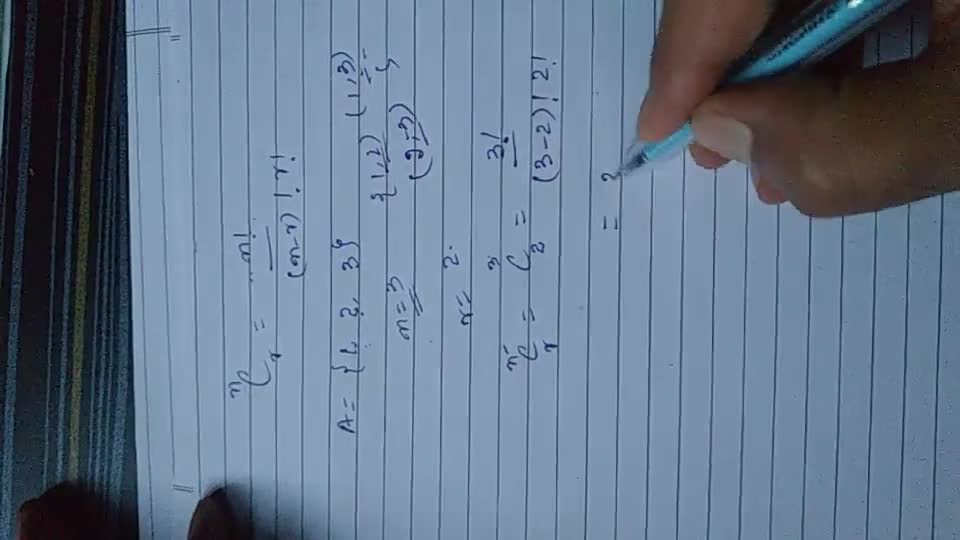 ⁿCᵣ = n! / (n-r)! r!
A = {1, 2, 3} {(1,2) (1,3)
n = 3 (2,3) }
r = 2.
ⁿCᵣ = ³C₂ = 3! / (3-2)! 2!
= 3